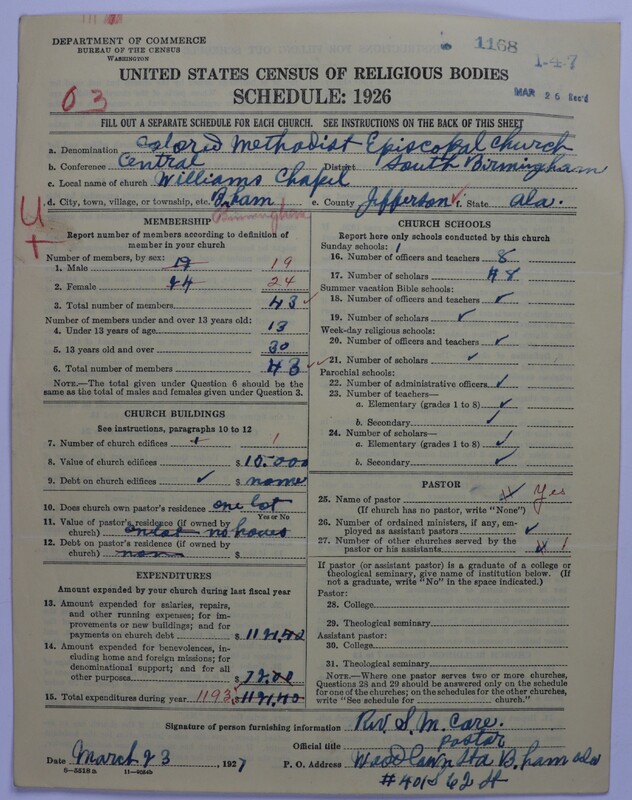 DEPARTMENT OF COMMERCE
BUREAU OF THE CENSUS
WASHINGTON
1168
147
MAR 26 Rec'd
UNITED STATES CENSUS OF RELIGIOUS BODIES
SCHEDULE: 1926
03
FILL OUT A SEPARATE SCHEDULE FOR EACH CHURCH. SEE INSTRUCTIONS ON THE BACK OF THIS SHEET
a. Denomination Colored Methodist Episcopal Church
b. Conference Central District South Birmingham
c. Local name of church Williams Chapel
d. City, town, village, or township, etc. B.ham e. County Jefferson f. State Ala.
Birmingham
U
+
MEMBERSHIP
Report number of members according to definition of member in your church
Number of members, by sex:
1. Male 19 19
2. Female 24
3. Total number of members 43
Number of members under and over 13 years old:
4. Under 13 years of age 13
5. 13 years old and over 30
6. Total number of members 43
NOTE.—The total given under Question 6 should be the
same as the total of males and females given under Question 3.
CHURCH BUILDINGS
See instructions, paragraphs 10 to 12
7. Number of church edifices 1 1
8. Value of church edifices $ 10.000
9. Debt on church edifices $ none
10. Does church own pastor's residence one lot
Yes or No
11. Value of pastor's residence (if owned by
church) one lot no houes
12. Debt on pastor's residence (if owned by
church) non $
EXPENDITURES
Amount expended by your church during last fiscal year
13. Amount expended for salaries, repairs,
and other running expenses; for im-
provements or new buildings; and for
payments on church debt $ 1121.40
14. Amount expended for benevolences, in-
cluding home and foreign missions; for
denominational support; and for all
other purposes $ 72.00
15. Total expenditures during year 1193 $ 1121.40
CHURCH SCHOOLS
Report here only schools conducted by this church
Sunday schools: 1
16. Number of officers and teachers 8
17. Number of scholars 48
Summer vacation Bible schools:
18. Number of officers and teachers
19. Number of scholars
Week-day religious schools:
20. Number of officers and teachers
21. Number of scholars
Parochial schools:
22. Number of administrative officers
23. Number of teachers—
a. Elementary (grades 1 to 8)
b. Secondary
24. Number of scholars—
a. Elementary (grades 1 to 8)
b. Secondary
PASTOR
25. Name of pastor Yes
(If church has no pastor, write "None")
26. Number of ordained ministers, if any, em-
ployed as assistant pastors
27. Number of other churches served by the
pastor or his assistants 1
If pastor (or assistant pastor) is a graduate of a college or
theological seminary, give name of institution below. (If
not a graduate, write "No" in the space indicated.)
Pastor:
28. College
29. Theological seminary
Assistant pastor:
30. College
31. Theological seminary
NOTE.—Where one pastor serves two or more churches,
Questions 28 and 29 should be answered only on the schedule
for one of the churches; on the schedules for the other churches,
write "See schedule for ________ church."
Signature of person furnishing information Rev. S. M. Care.
Official title pastor
Date March 23, 1927 P. O. Address Woodlawn Sta B.ham ala
#401 S 62 st
8—5518 a 11—9054b